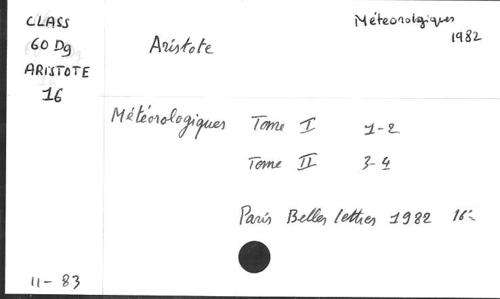 CLASS
60 Dg
ARISTOTE
16
Aristote
Météorologiques
1982
Météorologiques Tome I 1-2
Tome II 3-4
Paris Belles lettres 1982
11-83